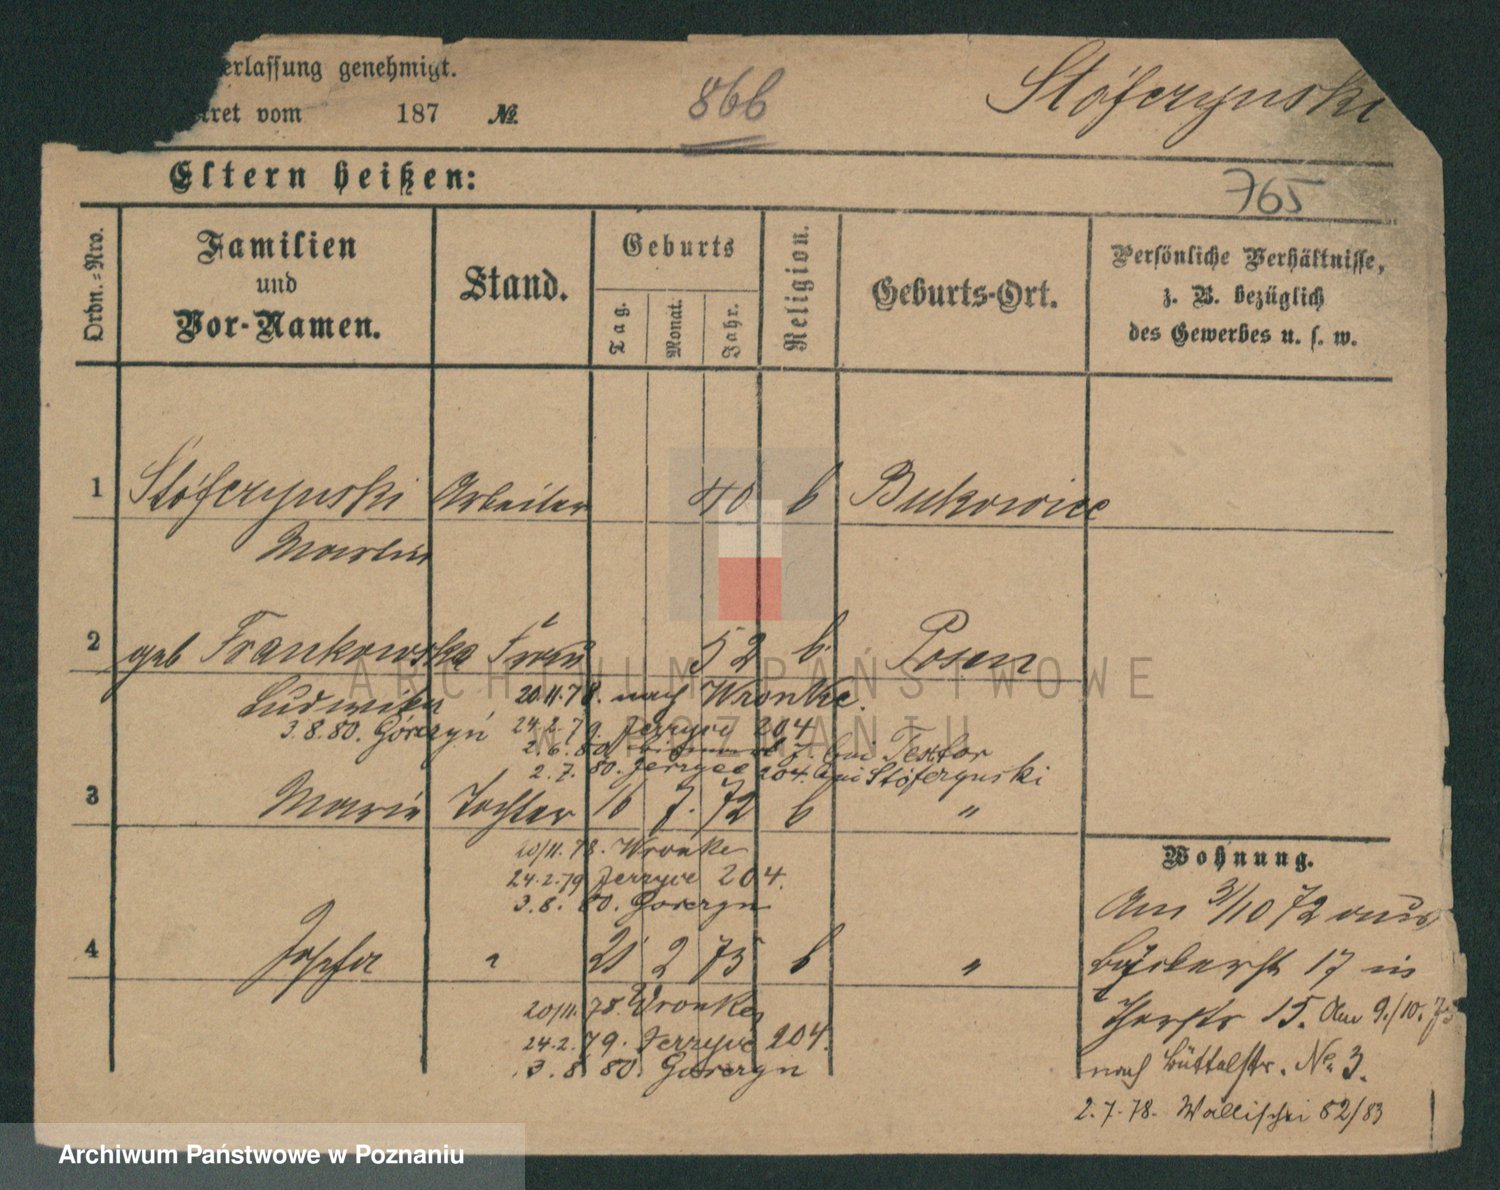 erlassung genehmigt.
ret vom 187 №
866
Stófczynski
Eltern heißen:
765
Ordn.-Nro.
Familien
und
Vor-Namen.
Stand.
Geburts
Tag.
Monat.
Jahr.
Religion.
Geburts-Ort.
Persönliche Verhältnisse,
z. B. bezüglich
des Gewerbes u. s. w.
1 Stófczynski Arbeiter 40 k Bukowiec
Martin
2 geb Frankowska Frau 52 k Posen
Ludwika 20.11.78. nach Wronke.
3.8.80. Górczyń 24.2.79. Jerzyce 204
2.6.80. bei Textor
2.7.80. Jerzyce 204. bei Stófczynski
3 Marie Tochter 16 7. 72 k "
20/11.78. Wronke
24.2.79 Jerzyce 204.
3.8.80. Gorczyn
4 Josefa " 21 2 75 k "
20/11.78. Wronke
24.2.79. Jerzyce 204.
3.8.80. Gorczyn
Wohnung.
Am 3/10 72 aus
17 in
15. Am 9./10. 75
nach Büttelstr. № 3.
2.7.78. Wallischei 82/83
ARCHIWUM PAŃSTWOWE
W POZNANIU
Archiwum Państwowe w Poznaniu